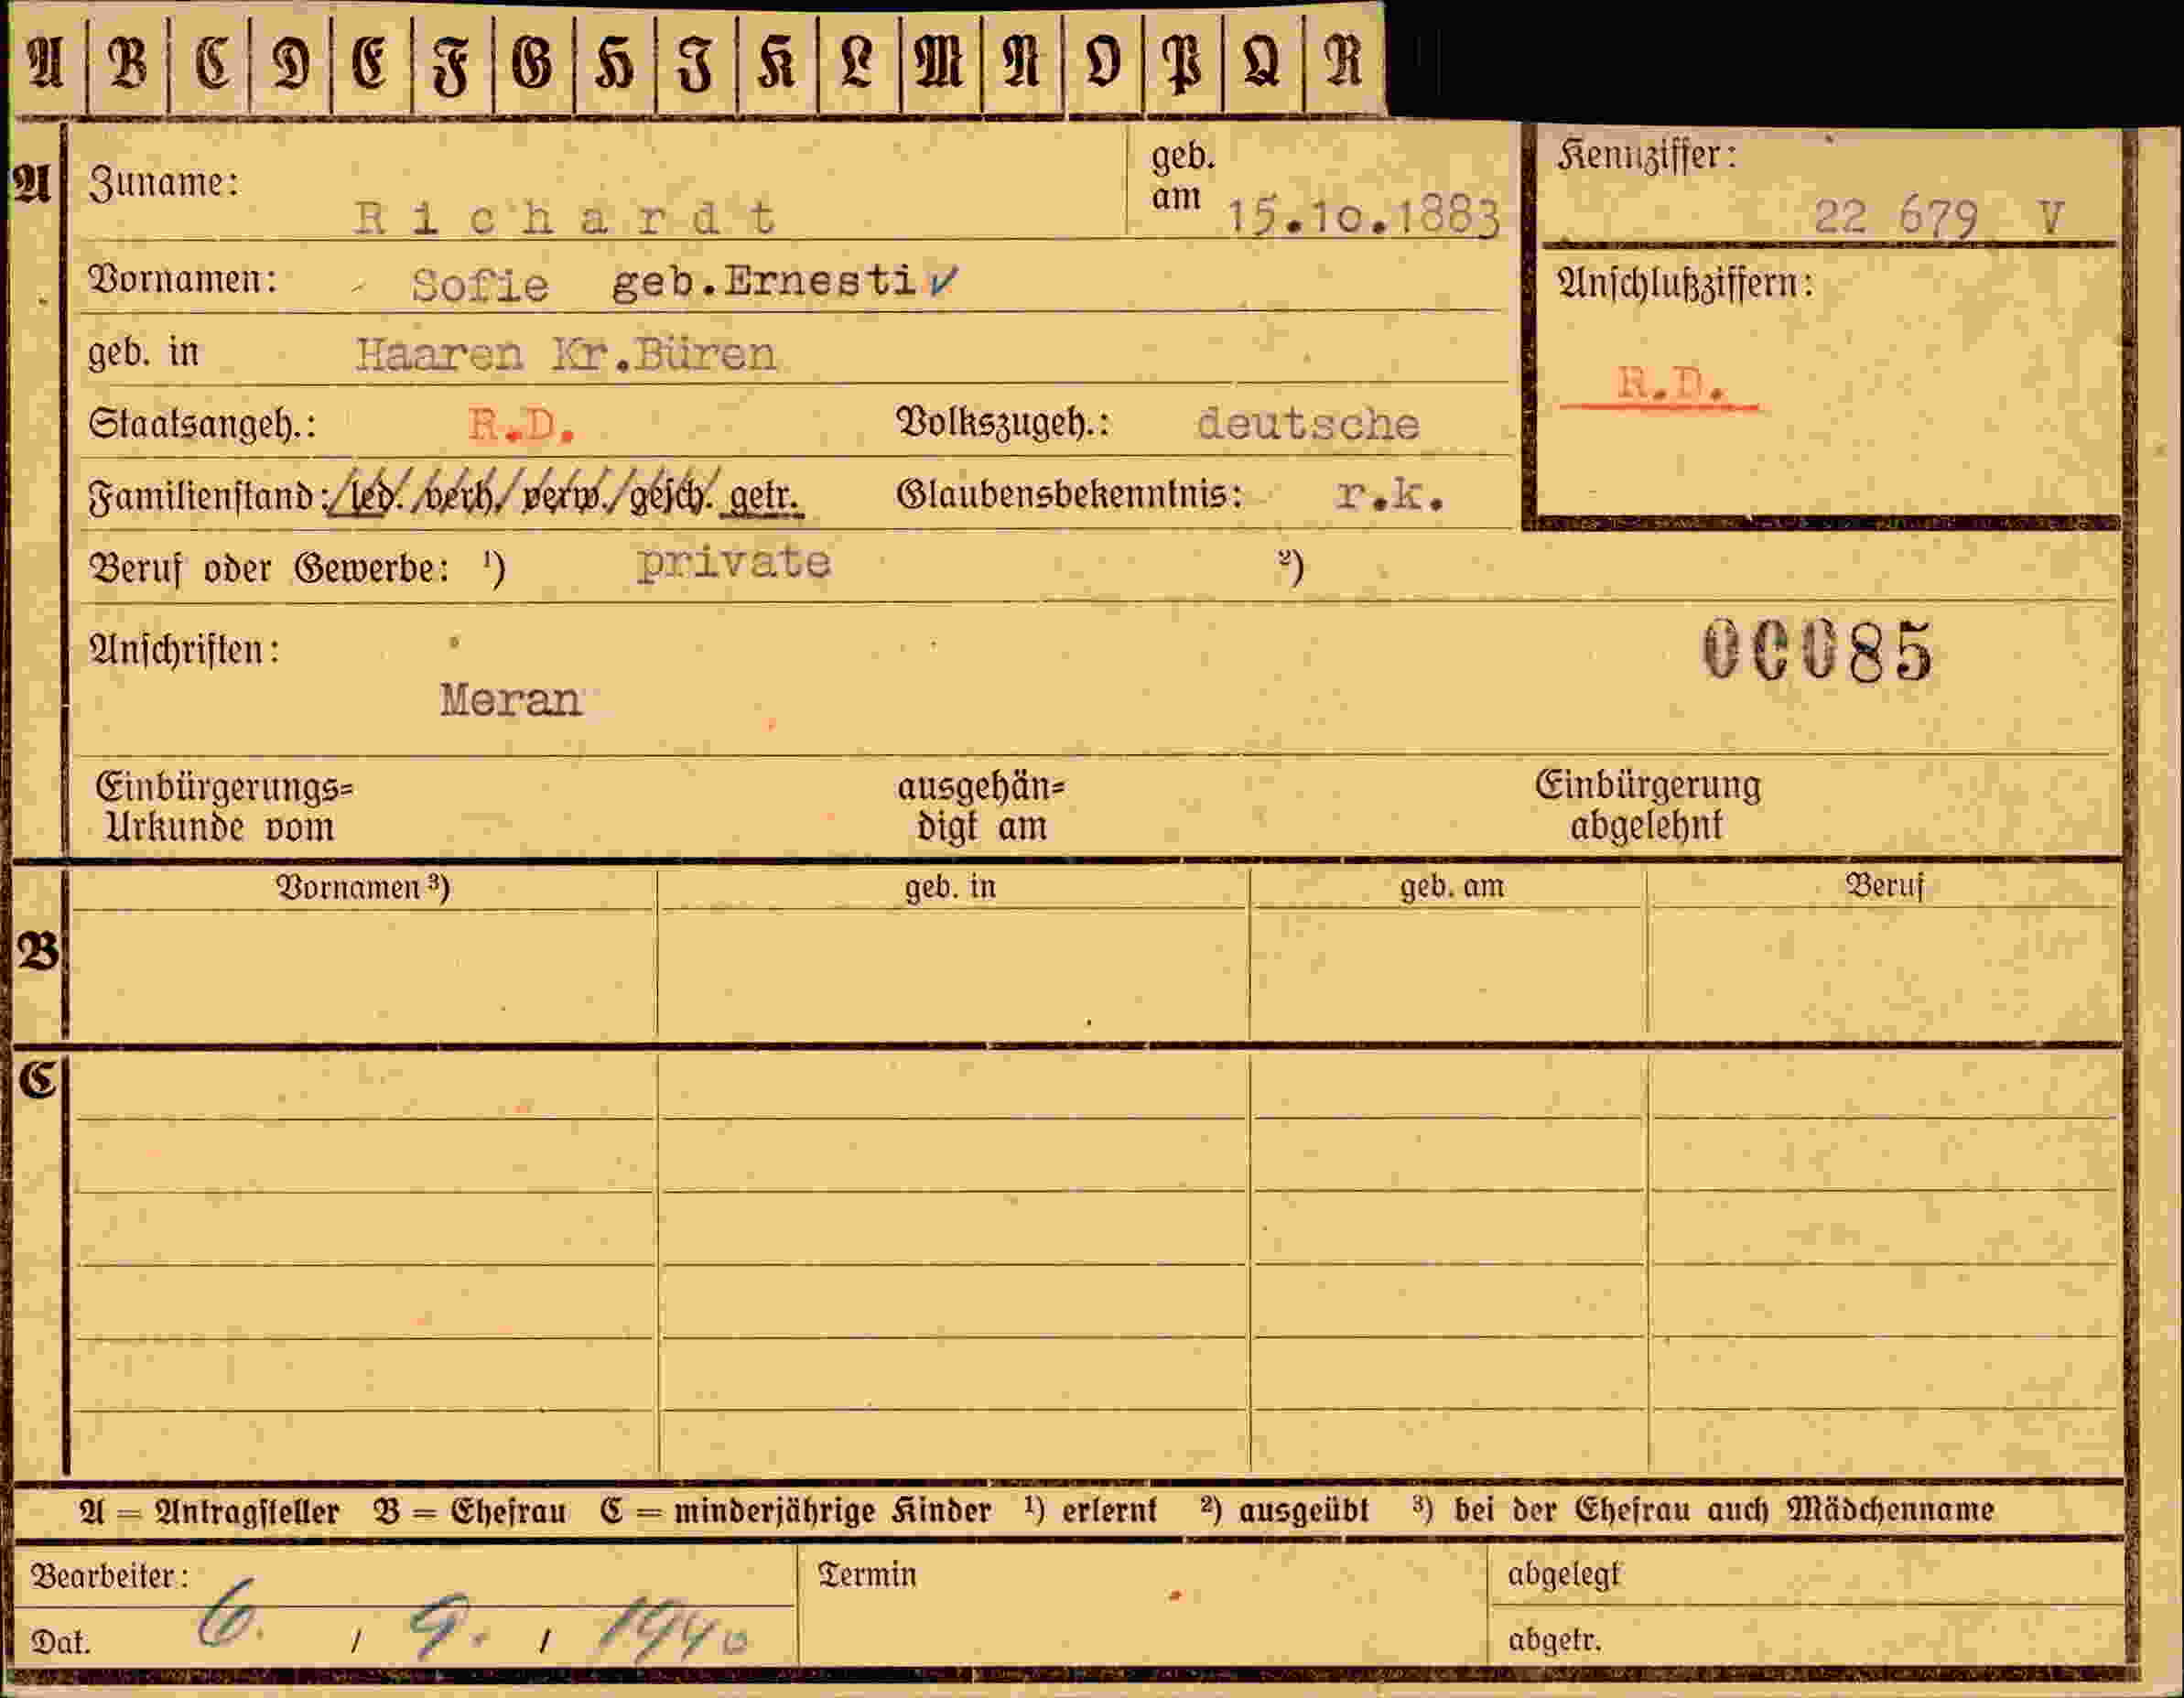 A B C D E F G H I K L M N O P Q R
A Zuname: Richardt geb. am 15.10.1883 Kennziffer: 22 679 V
Vornamen: Sofie geb.Ernesti ✓ Anschlußziffern:
geb. in Haaren Kr.Büren R.D.
Staatsangeh.: R.D. Volkszugeh.: deutsche
Familienstand: led. verh. verw. gesch. getr. Glaubensbekenntnis: r.k.
Beruf oder Gewerbe: ¹) private ²)
Anschriften: 00085
Meran
Einbürgerungs= ausgehän= Einbürgerung
Urkunde vom digt am abgelehnt
Vornamen ³) geb. in geb. am Beruf
B
C
A = Antragsteller B = Ehefrau C = minderjährige Kinder ¹) erlernt ²) ausgeübt ³) bei der Ehefrau auch Mädchenname
Bearbeiter: Termin abgelegt
Dat. 6. / 9. / 1940 abgetr.